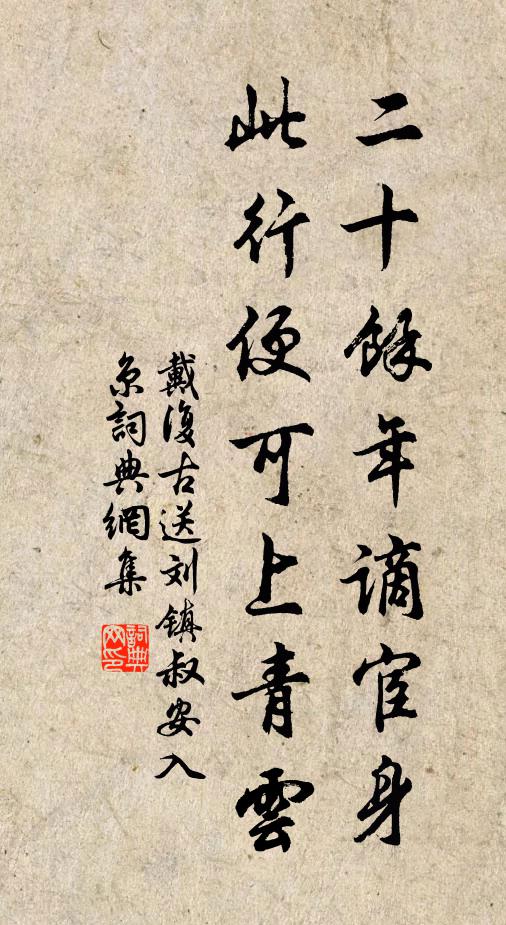 二十餘年謫宦身
此行便可上青雲
戴復古送刘鎮叔安入
京詞典網集
詞典
网印